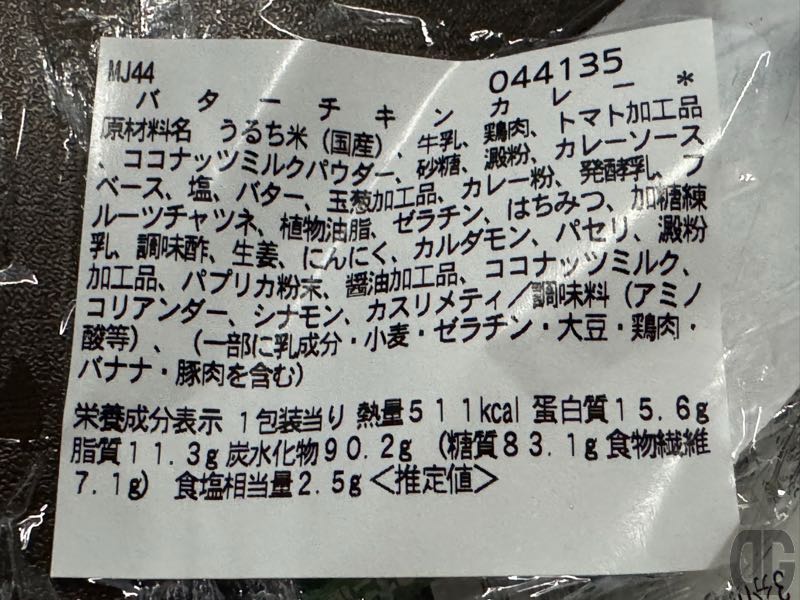 MJ44
044135
バターチキンカレー*
原材料名 うるち米(国産)、牛乳、鶏肉、トマト加工品
、ココナッツミルクパウダー、砂糖、澱粉、カレーソース
ベース、塩、バター、玉葱加工品、カレー粉、発酵乳、フ
ルーツチャツネ、植物油脂、ゼラチン、はちみつ、加糖練
乳、調味酢、生姜、にんにく、カルダモン、パセリ、澱粉
加工品、パプリカ粉末、醤油加工品、ココナッツミルク、
コリアンダー、シナモン、カスリメティ/調味料(アミノ
酸等)、(一部に乳成分・小麦・ゼラチン・大豆・鶏肉・
バナナ・豚肉を含む)
栄養成分表示 1包装当り 熱量511kcal 蛋白質15.6g
脂質11.3g 炭水化物90.2g (糖質83.1g 食物繊維
7.1g) 食塩相当量2.5g<推定値>